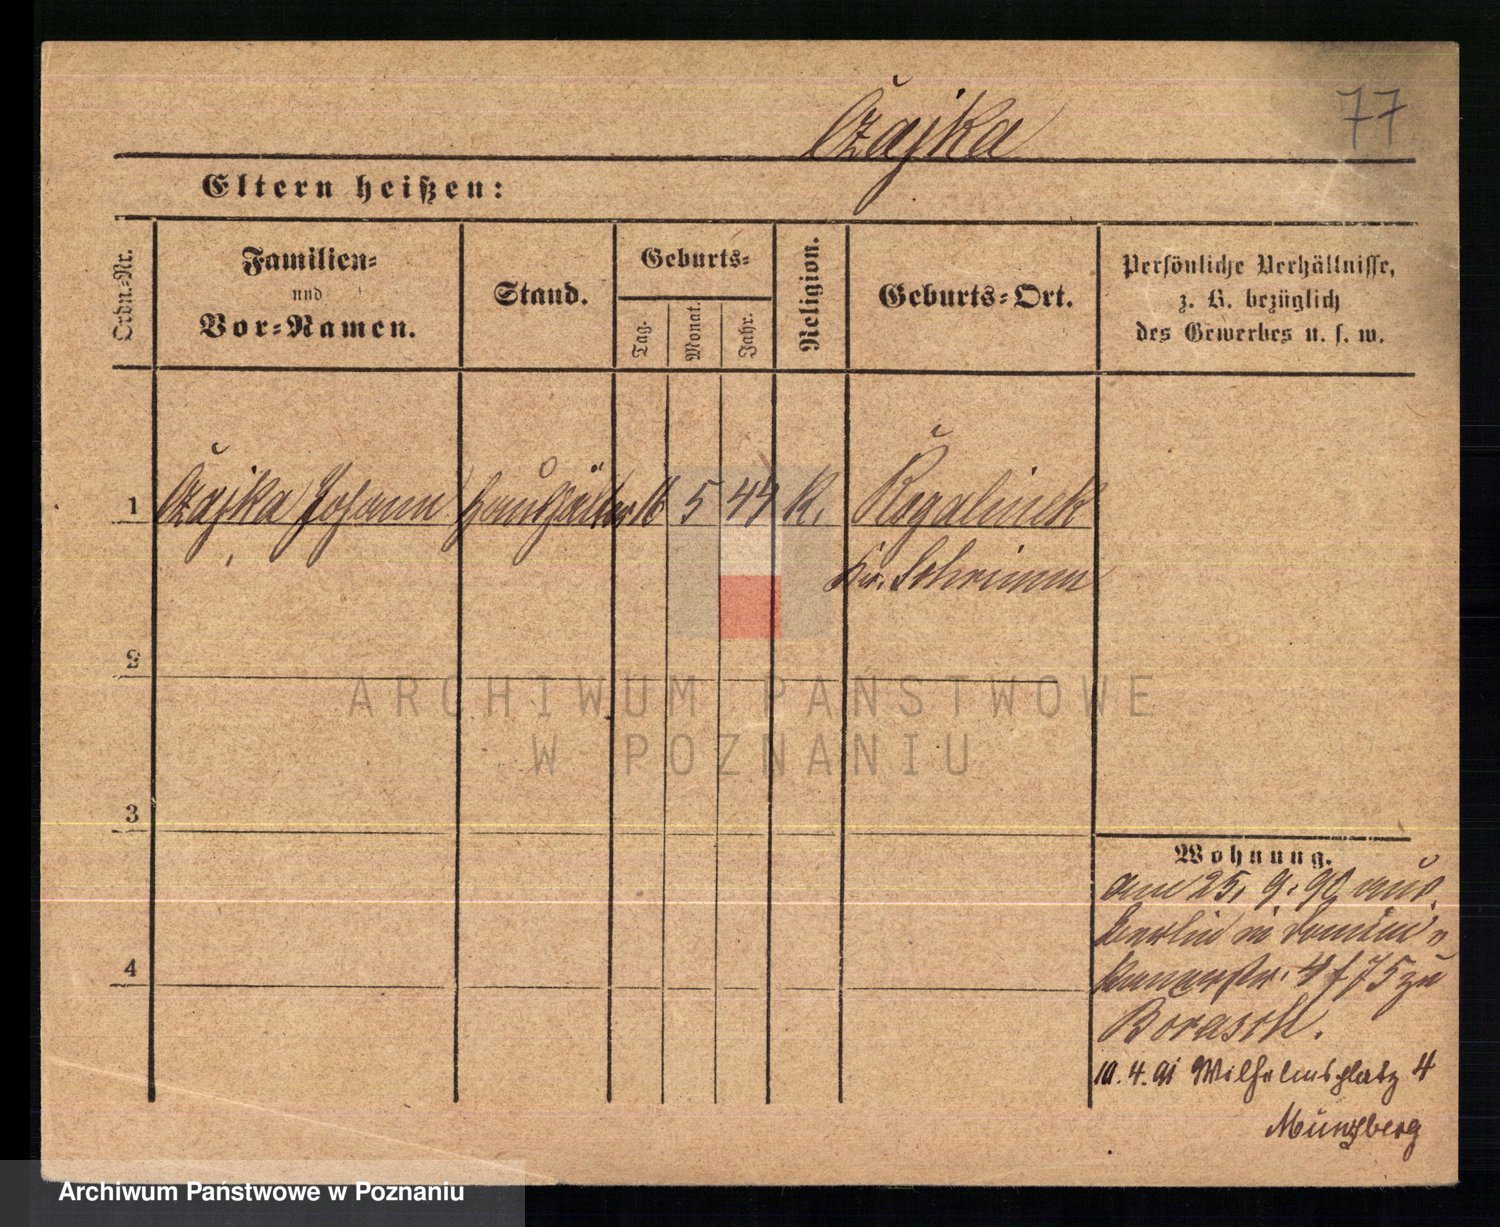 Czajka
77
Eltern heißen:
Ordn.-Nr.
Familien-
und
Vor-Namen.
Stand.
Geburts-
Tag.
Monat.
Jahr.
Religion.
Geburts-Ort.
Persönliche Verhältnisse,
z. B. bezüglich
des Gewerbes u. s. w.
1 Czajka Johann Haushälter 16 5 44 K. Rogalinek
Kr. Schrimm
2
3
4
ARCHIWUM PAŃSTWOWE
W POZNANIU
Wohnung.
am 25. 9. 90 aus
Berlin in Domini-
kanerstr. 4 f 75 zu
Borasch.
10. 4. 91 Wilhelmsplatz 4
Munzberg
Archiwum Państwowe w Poznaniu